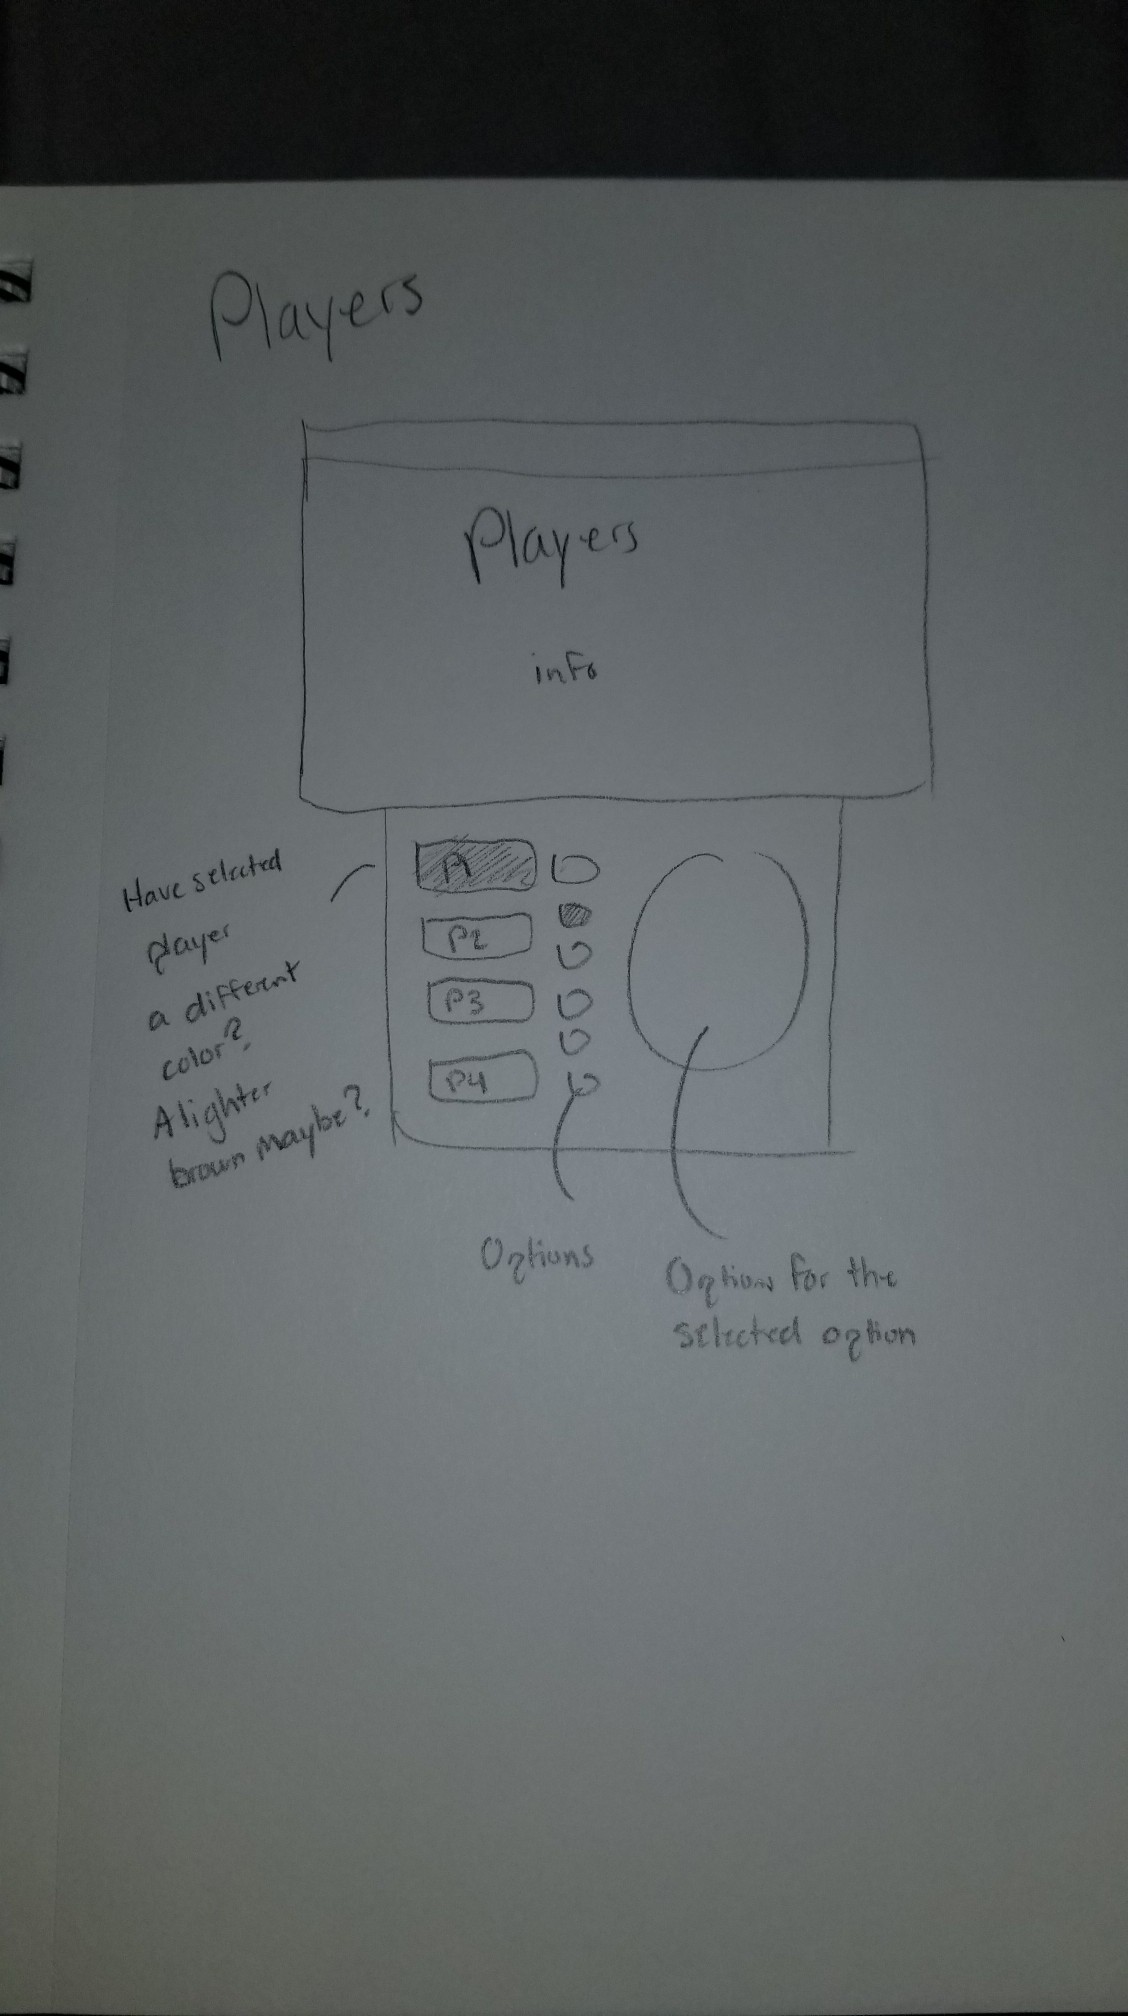 Players
Players
info
P2
P3
P4
Have selected
player
a different
color?
A lighter
brown maybe?
Options
Options for the
selected option